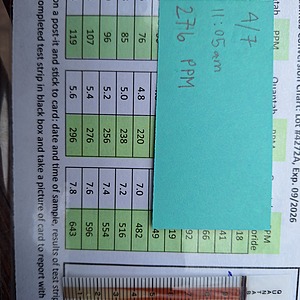 Chart: Lot#4272A, Exp. 09/2026
Quantab PPM
PPM
oride
18
41
66
92
19
49
A/7
11:05am
276 PPM
76 4.8 220 7.0 482
85 5.0 238 7.2 516
96 5.2 256 7.4 554
107 5.4 276 7.6 596
119 5.6 296 7.8 643
on a post-it and stick to card: date and time of sample, results of test strip
ompleted test strip in black box and take a picture of card to report with
QUAN